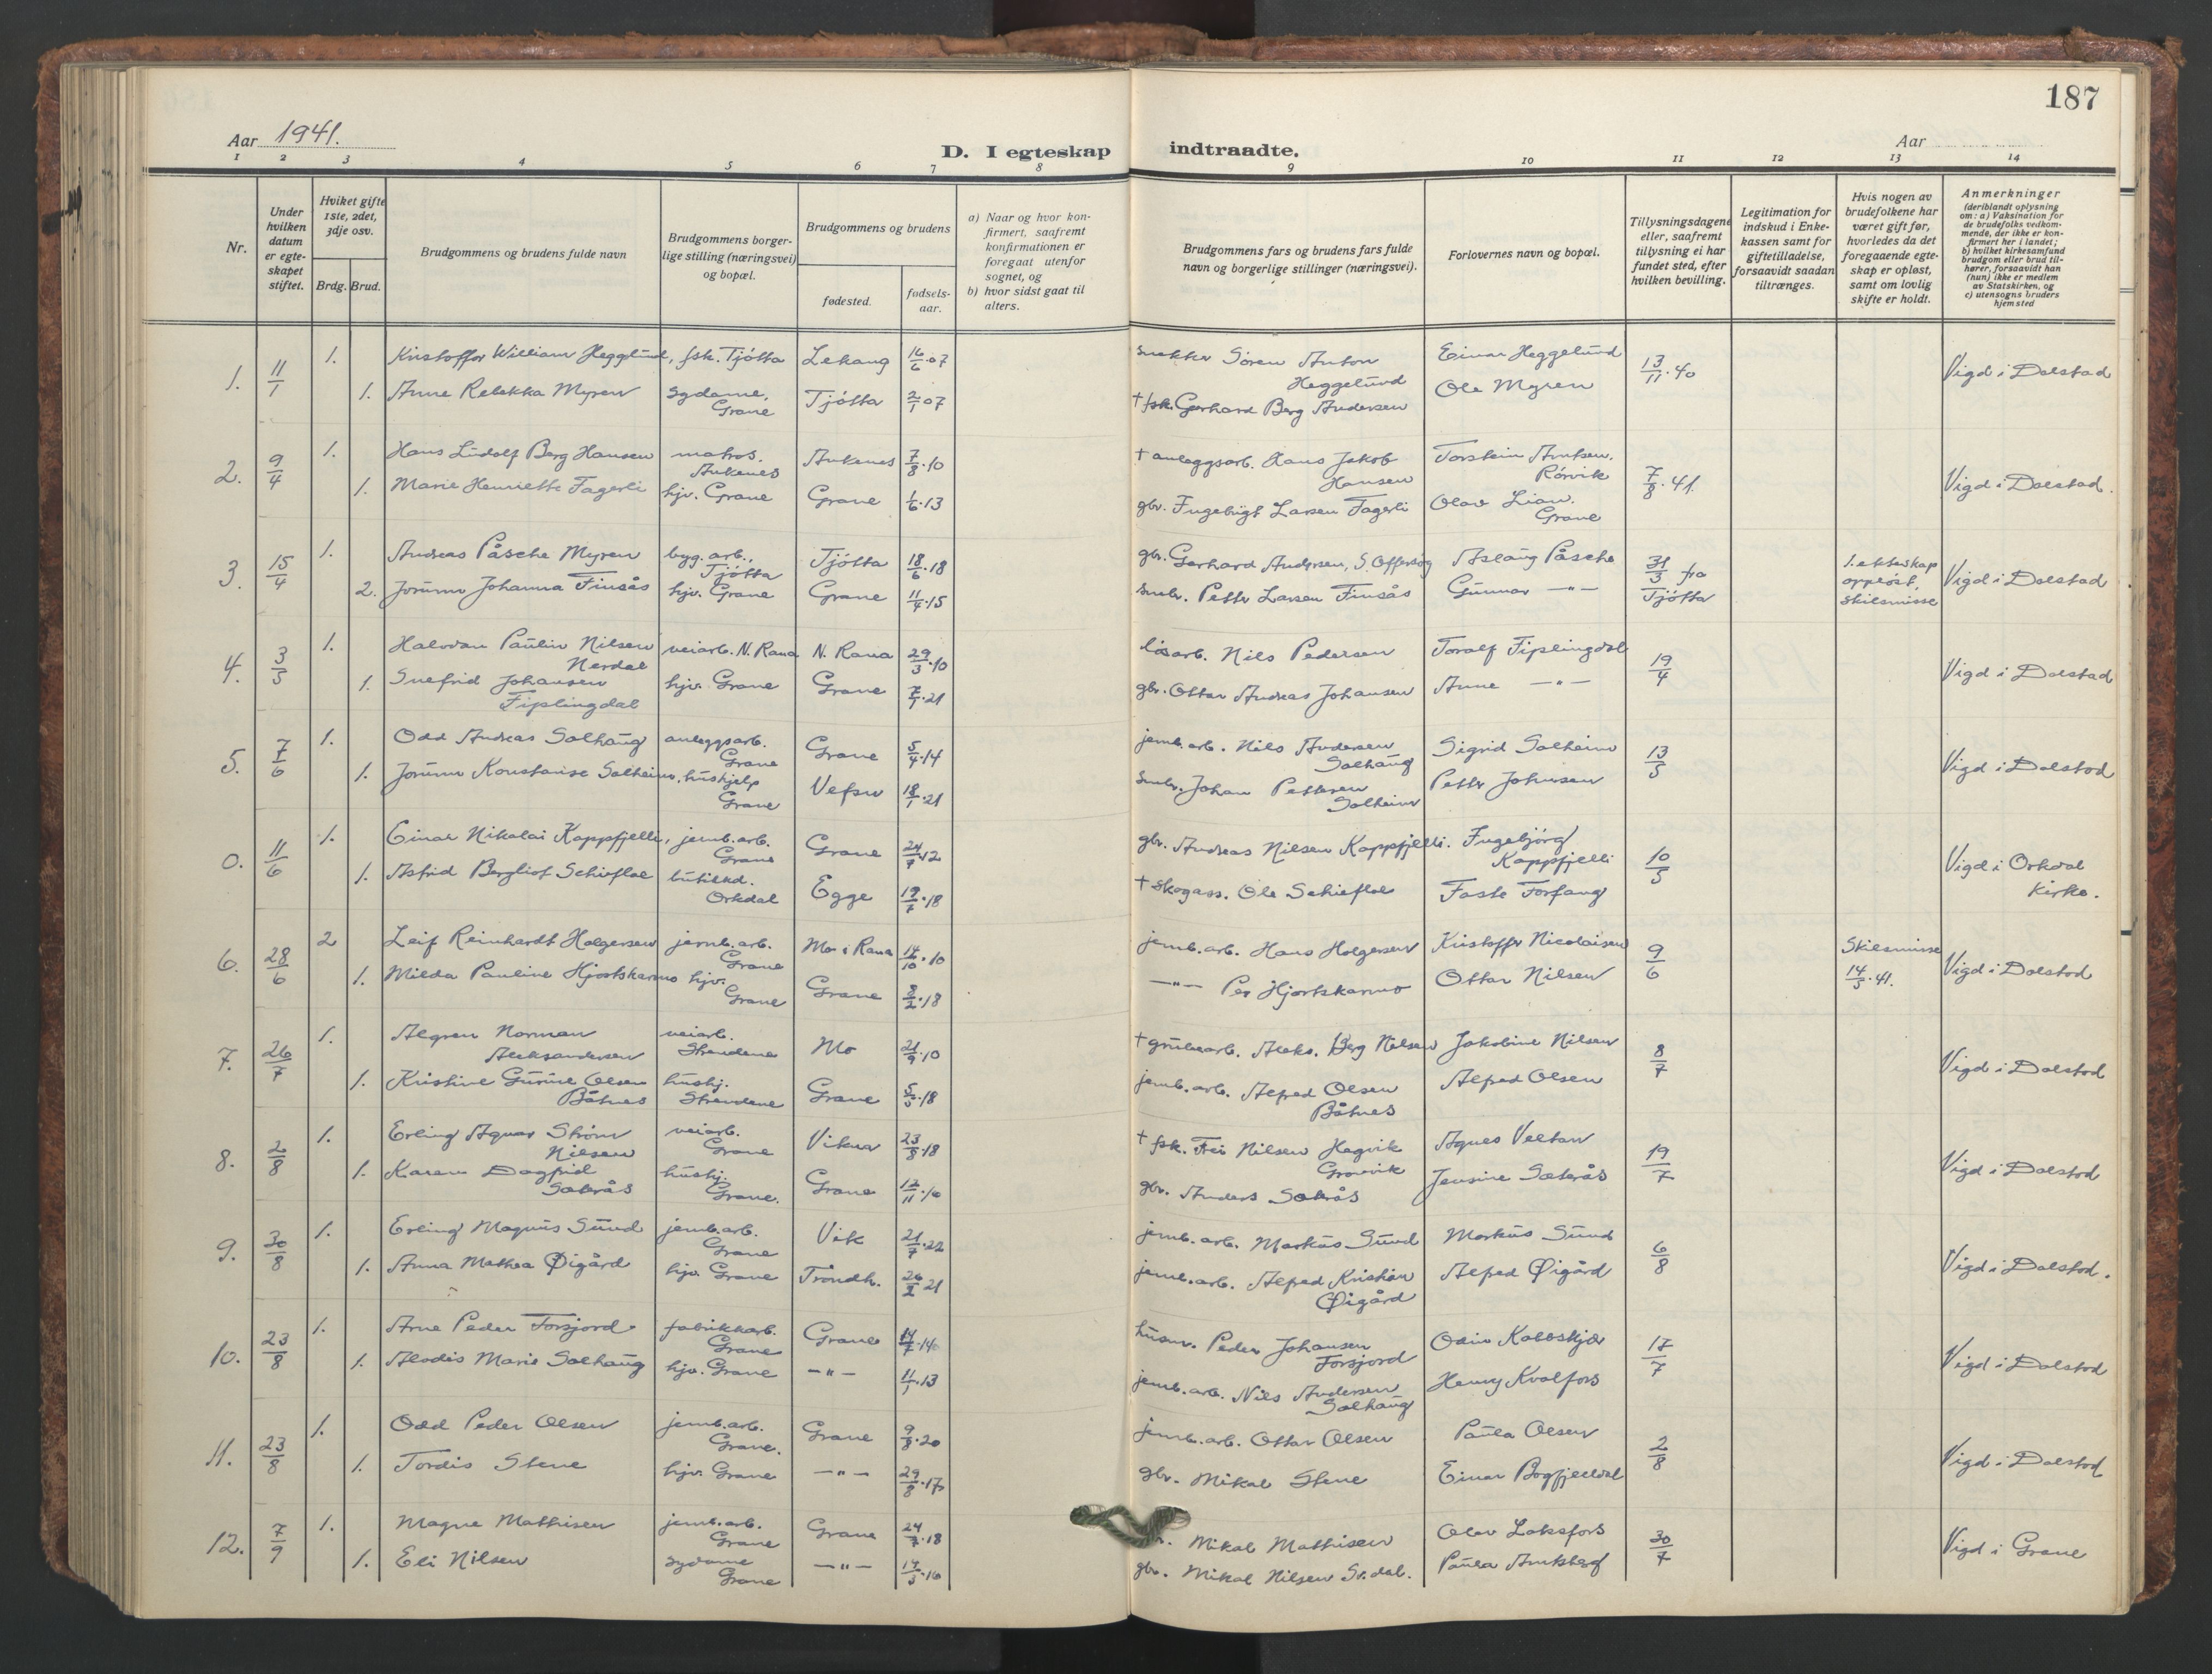 187
Aar 1941.
D. I egteskap indtraadte.
Aar
1 2 3 4 5 6 7 8 9 10 11 12 13 14
Nr.
Under hvilken datum er egteskapet stiftet.
Hviket gifte 1ste, 2det, 3dje osv.
Brdg. Brud.
Brudgommens og brudens fulde navn
Brudgommens borgerlige stilling (næringsvei) og bopæl.
Brudgommens og brudens
fødested.
fødselsaar.
a) Naar og hvor konfirmert, saafremt konfirmationen er foregaat utenfor sognet, og
b) hvor sidst gaat til alters.
Brudgommens fars og brudens fars fulde navn og borgerlige stillinger (næringsvei).
Forlovernes navn og bopæl.
Tillysningsdagene eller, saafremt tillysning ei har fundet sted, efter hvilken bevilling.
Legitimation for indskud i Enkekassen samt for giftetilladelse, forsaavidt saadan tiltrænges.
Hvis nogen av brudefolkene har været gift før, hvorledes da det foregaaende egteskap er opløst, samt om lovlig skifte er holdt.
Anmerkninger (deriblandt oplysning om: a) Vaksination for de brudefolks vedkommende, der ikke er konfirmert her i landet; b) hvilket kirkesamfund brudgom eller brud tilhører, forsaavidt han (hun) ikke er medlem av Statskirken, og c) utensogns bruders hjemsted
1. 11/1 1. Kristoffer William Heggelund, fsk. Tjøtta Lekang 16/6.07 snekker Søren Anton Heggelund Einar Heggelund 13/11.40 Vigd i Dolstad
1. Anne Rebekka Myren sydame, Grane Tjøtta 2/1 07 † fsk. Gerhard Berg Andersen Ole Myren
2. 9/4 1. Hans Ludolf Berg Hansen matros. Ankenes Ankenes 7/8.10 † anleggsarb. Hans Jakob Hansen Torstein Arntsen. Rørvik 7/8.41. Vigd i Dolstad.
1. Marie Henriette Fagerli hjv. Grane Grane 1/6.13 gbr. Ingebrigt Larsen Fagerli Olav Lian. Grane
3. 15/4 1. Andreas Påsche Myren byg. arb., Tjøtta Tjøtta 18/6.18 gbr. Gerhard Andersen, S. Offersøy Aslaug Påsche 31/3 fra Tjøtta 1. ekteskap oppløst, skilsmisse Vigd i Dolstad
2. Jorunn Johanna Finsås hjv. Grane Grane 11/4.15 smbr. Petter Larsen Finsås Gunnar —"—
4. 3/5 1. Halvdan Paulin Nilsen Nerdal veiarb. N. Rana N. Rana 29/3.10 løsarb. Nils Pedersen Toralf Fiplingdal 19/4 Vigd i Dolstad
1. Snefrid Johansen Fiplingdal hjv. Grane Grane 7/1.21 gbr. Ottar Andreas Johansen Anne —"—
5. 7/6 1. Odd Andreas Solhaug anleggsarb. Grane Grane 5/4.14 jernb. arb. Nils Andersen Solhaug Sigrid Solheim 13/5 Vigd i Dolstad
1. Jorunn Konstanse Solheim, hushjelp Grane Vefsn 18/1.21 smbr. Johan Pettersen Solheim Petter Johnsen
0. 11/6 1. Einar Nikolai Kappfjelli, jernb.arb. Grane Grane 24/7.12 gbr. Andreas Nilsen Kappfjelli. Ingebjørg Kappfjelli 10/5 Vigd i Orkdal kirke.
1. Astrid Bergliot Schiefloe butikkd. Orkdal Egge 19/7.18 † skogass. Ole Schiefloe Faste Forfang
6. 28/6 2 Leif Reinhardt Holgersen jernb.arb. Grane Mo i Rana 14/10.10 jernb.arb. Hans Holgersen Kristoffer Nicolaisen 9/6 Skilsmisse 14/5.41. Vigd i Dolstad
1. Milda Pauline Hjortskarmo hjv. Grane Grane 8/2.18 —"— Per Hjortskarmo Ottar Nilsen
7. 26/7 1. Algren Norman Aleksandersen veiarb. Strendene Mo 21/9.10 † grubearb. Aleks. Berg Nilsen Jakobine Nilsen 8/7 Vigd i Dolstad
1. Kristine Gurine Olsen Båtnes hushj. Strendene Grane 5/5.18 jernb.arb. Alfred Olsen Båtnes Alfred Olsen
8. 2/8 1. Erling Agnar Strøm Nilsen veiarb. Grane Vikna 23/8.18 † fsk. Nilsen Hegvik Agnes Veltan 19/7 Vigd i Dolstad
1. Karen Dagfrid Sæterås hushj. Grane. Grane 12/11.16 gbr. Anders Sæterås Jensine Sæterås
9. 30/8 1. Erling Magnus Sund jernb.arb. Grane Vik 21/7.22 jernb. arb. Markus Sund Markus Sund 6/8 Vigd i Dolstad.
1. Anna Mathea Øigård hjv. Grane Trondh. 26/2 21 jernb.arb. Alfred Kristian Øigård Alfred Øigård
10. 23/8 1. Arne Peder Forsjord fabrikkarb. Grane Grane 14/7.14 husm. Peder Johansen Forsjord Odin Kobbskjær 17/7 Vigd i Dolstad
1. Alvdis Marie Solhaug hjv. Grane —"— 11/1.13 jernb.arb. Nils Andersen Solhaug Henry Kvalfors
11. 23/8 1. Odd Peder Olsen jernb.arb. Grane. Grane 9/8.20 jernb.arb. Ottar Olsen Paula Olsen 2/8 Vigd i Dolstad
1. Tordis Stene hjv. Grane —"— 29/8.17 gbr. Mikal Stene Einar Bogfjelldal
12. 7/9 1. Magne Mathisen jernb.arb. Grane Grane 24/7.18 Mikal Mathisen Olav Laksfors 30/7 Vigd i Grane
1. Eli Nilsen sydame Grane —"— 17/3.16 gbr. Mikal Nilsen Sv.dal. Paula Arntsberg